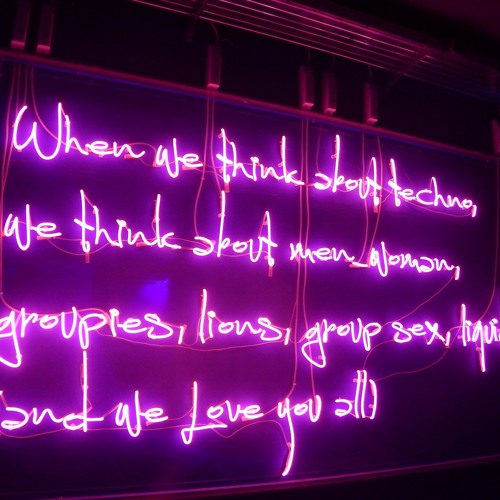 When we think about techno,
we think about men, woman,
groupies, lions, group sex,
and we Love you all)